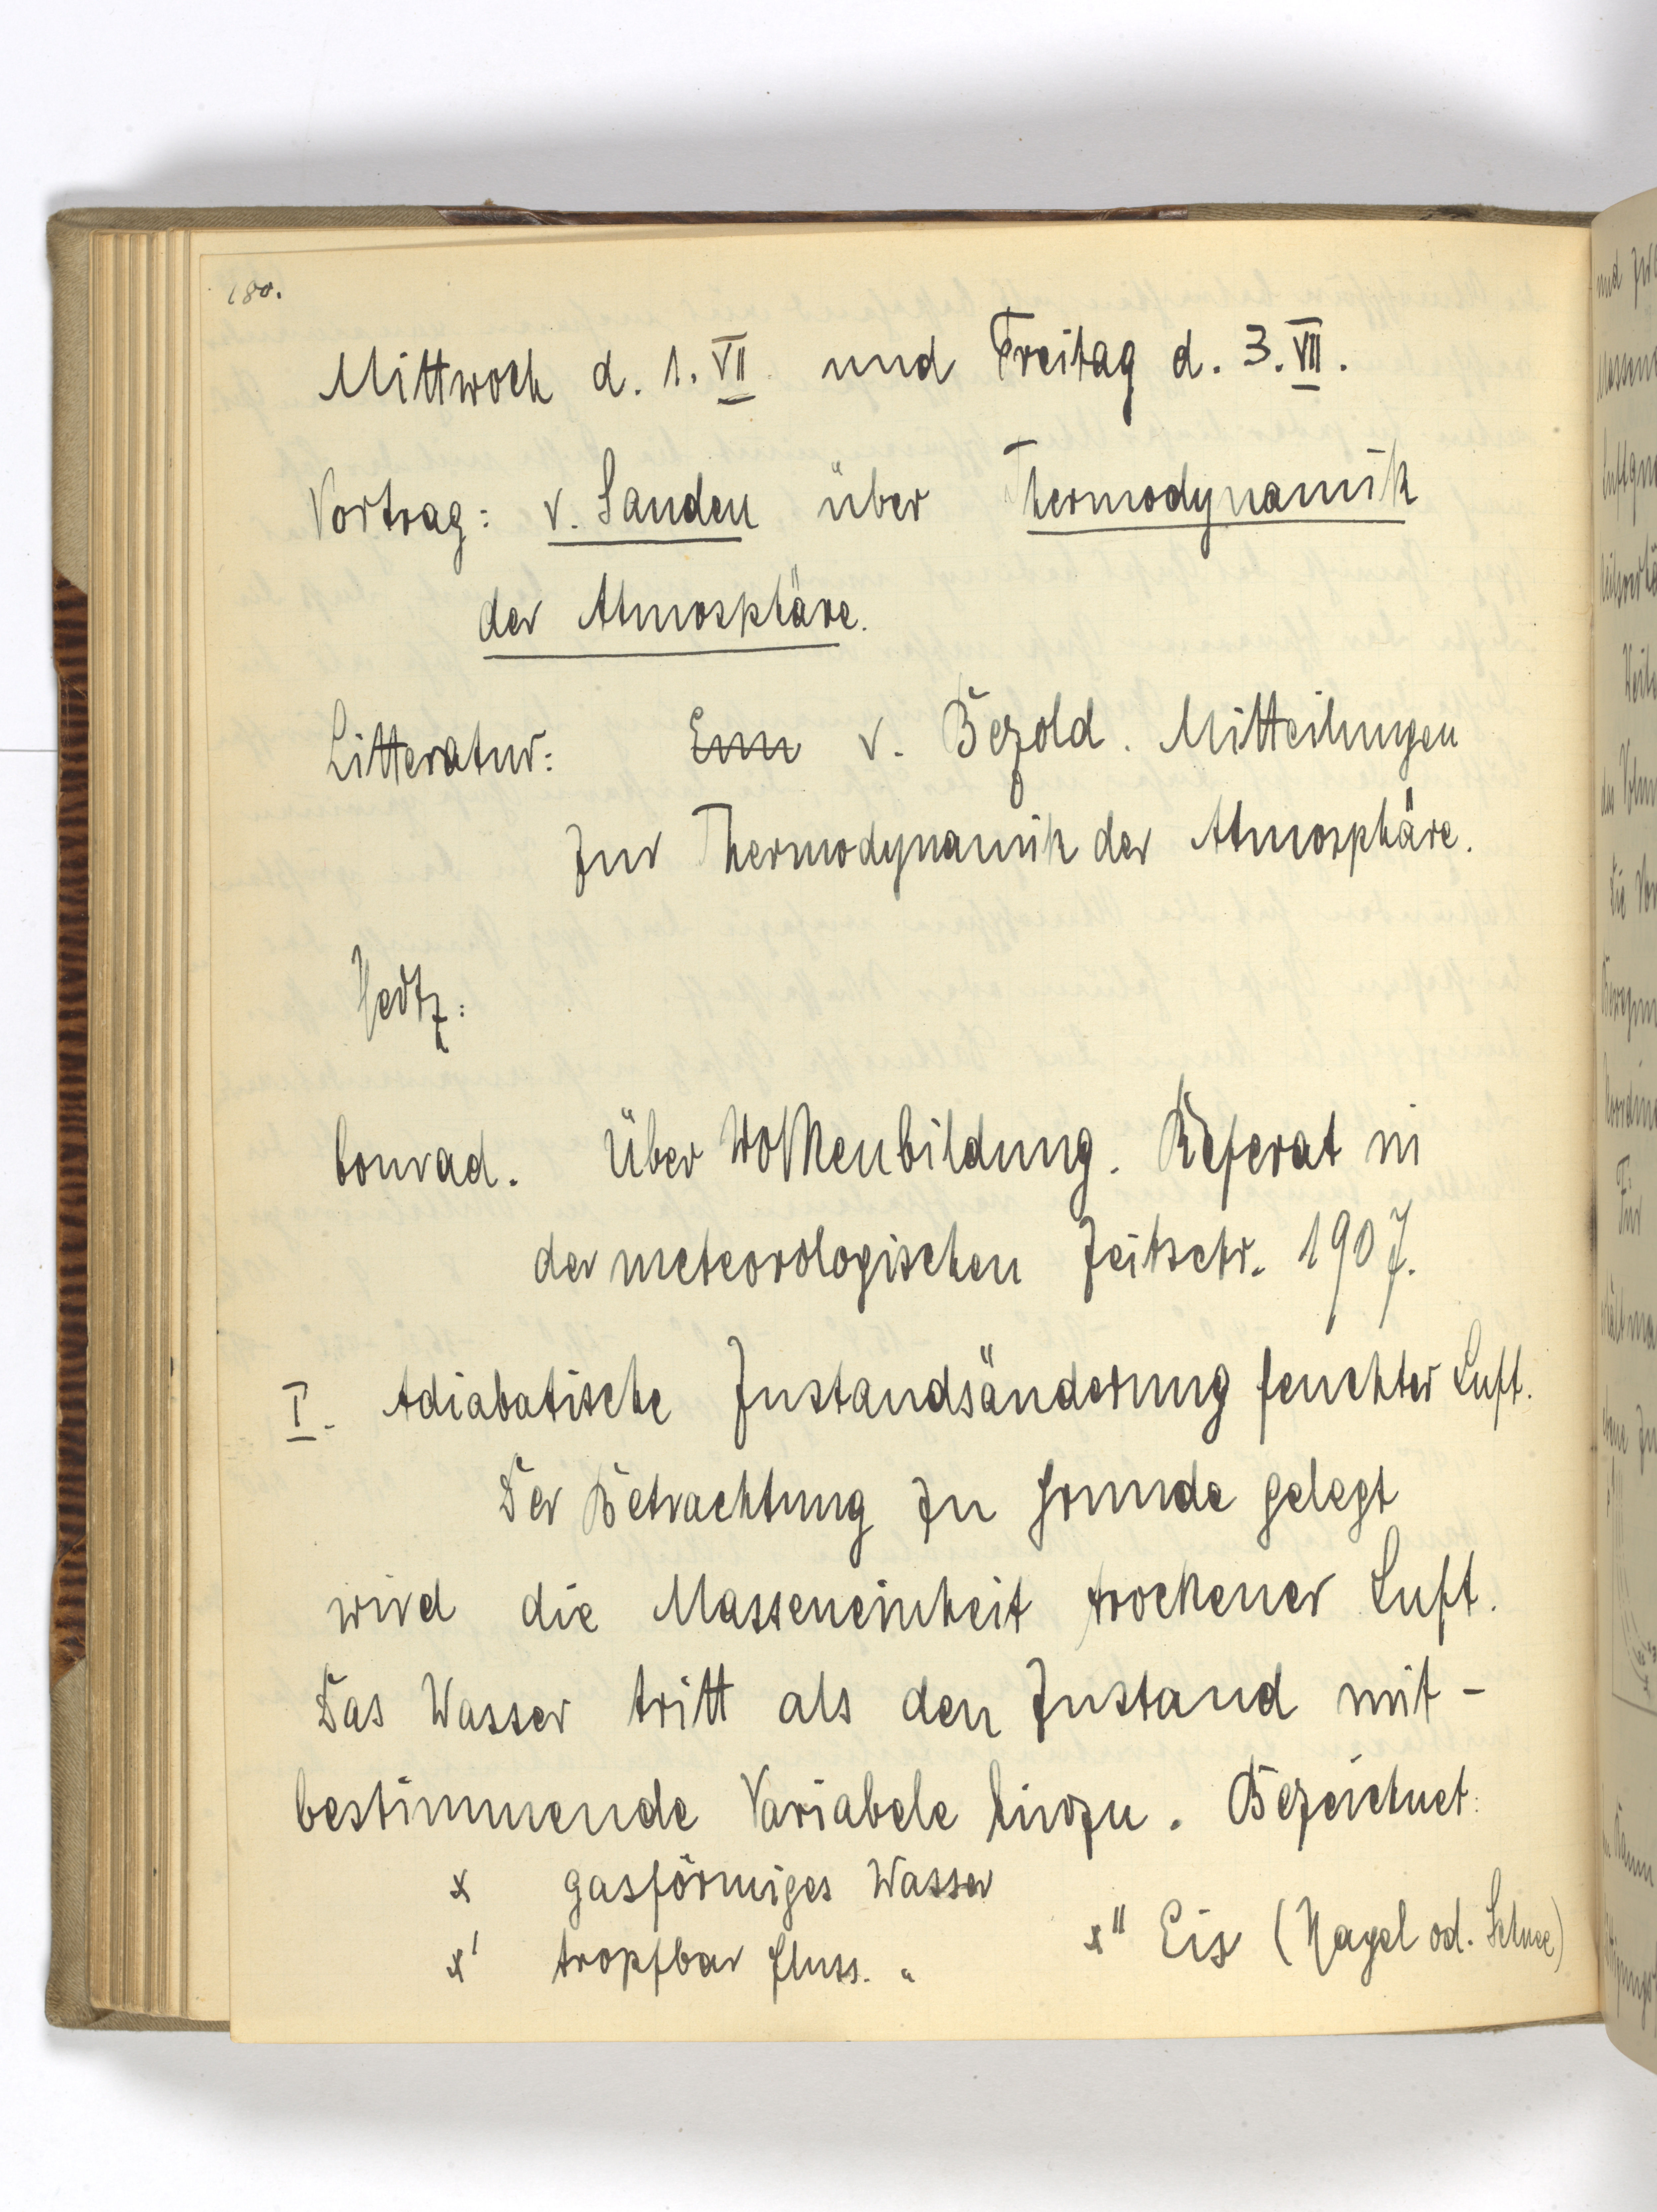 180.
Mittwoch d. 1. VII und Freitag d. 3. VII.
Vortrag: v. Sanden über Thermodynamik
der Atmosphäre.
Litteratur: Em v. Bezold. Mitteilungen
zur Thermodynamik der Atmosphäre.
Hertz:
Conrad. Über Wolkenbildung. Referat in
der meteorologischen Zeitschr. 1907.
I. Adiabatische Zustandsänderung feuchter Luft.
Der Betrachtung zu Grunde gelegt
wird die Masseneinheit trockener Luft.
Das Wasser tritt als den Zustand mit-
bestimmende Variabele hinzu. Bezeichnet:
x gasförmiges Wasser
x' tropfbar fluss. " x'' Eis (Hagel od. Schnee)